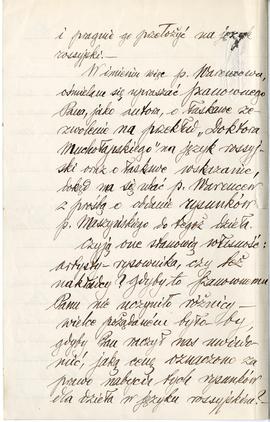 i pragnie go przełożyć na język
rossyjski.—
W imieniu więc p. Warencowa,
ośmielam się upraszać Szanownego
Pana, jako autora, o łaskawe ze-
zwolenie na przekład „Doktora
Muchołapskiego" na język rossyj-
ski oraz o łaskawe wskazanie,
dokąd ma się udać p. Warencow
z prośbą o oddanie rysunków
p. Maszyńskiego do tegoż dzieła.
Czy są one stanowią własność:
artysty-rysownika, czy też
nakładcy? gdyby to Szanownemu
Panu nie uczyniło różnicy—
wielce pożądanem byłoby,
gdyby Pan raczył nas uwiado-
mić, jaką cenę oznaczono za
prawo nabycia tych rysunków
dla dzieła w języku rossyjskim?